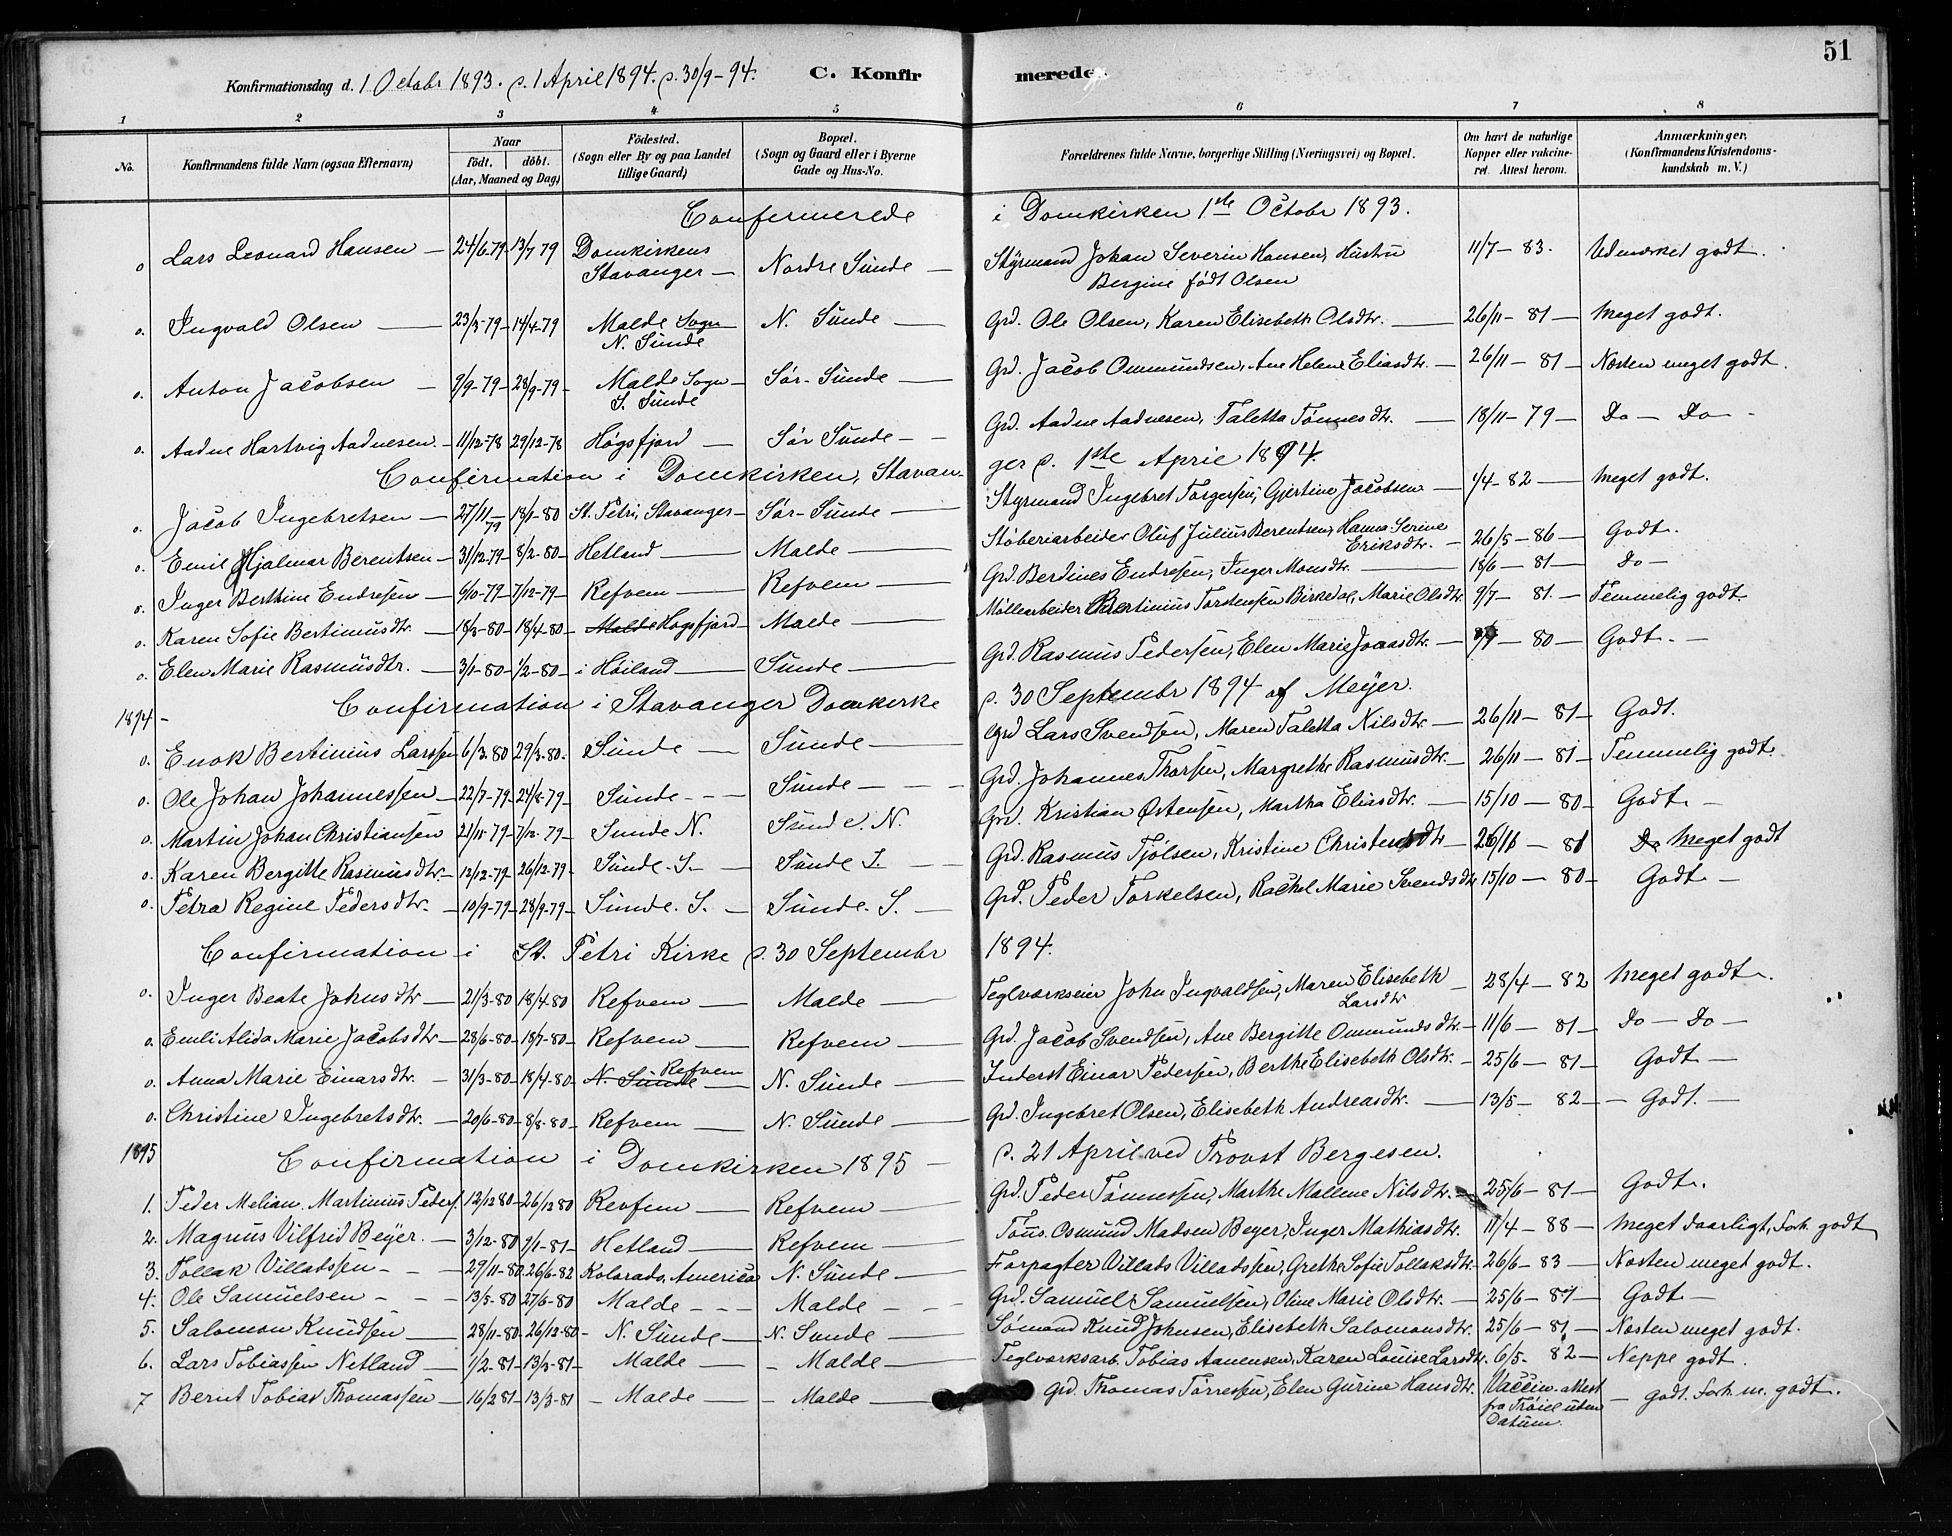 51
Konfirmationsdag d. 1 Octobr 1893. d. 1 April 1894. d. 30/9-94. C. Konfirmerede.
1 2 3 4 5 6 7 8
No. Konfirmandens fulde Navn (ogsaa Efternavn) Naar födt. döbt. (Aar, Maaned og Dag) Födested. (Sogn eller By og paa Landet tillige Gaard) Bopæl. (Sogn og Gaard eller i Byerne Gade og Hus-No. Forældrenes fulde Navne, borgerlige Stilling (Næringsvei) og Bopæl. Om havt de naturlige Kopper eller vakcineret. Attest herom. Anmærkninger. (Konfirmandens Kristendomskundskab m. V.)
Confirmerede i Domkirken 1ste Octobr 1893.
o Lars Leonard Hansen — 24/6-79 13/7 79 Domkirkens Stavanger — Nordre Sunde — Styrmand Johan Severin Hansen, Hustru Bergine født Olsen 11/7 - 83. Udmærket godt.
o. Ingvald Olsen — 23/3-79 14/4-79 Malde Sogn N. Sunde N. Sunde — Grd. Ole Olsen, Karen Elisebeth Olsdtr. — 26/11 - 81 — Meget godt.
o. Anton Jacobsen — 9/9-79 28/9-79 Malde Sogn S. Sunde Sør-Sunde — Grd. Jacob Ommundsen, Ane Helene Eliasdtr. — 26/11 - 81 — Næsten meget godt.
o. Aadne Hartvig Aadnesen. 11/12-78 29/12-78 Høgsfjord — Sør Sunde — Grd. Aadne Aadnesen, Taletta Tønnesdtr. — 18/11 - 79 — Do — Do —
Confirmation i Domkirken, Stavanger d. 1ste April 1894.
o. Jacob Ingebretsen — 27/11-79 18/1-80 St. Petri, Stavanger — Sør-Sunde — Styrmand Ingebret Torgersen, Gjertine Jacobsen — 1/4 - 82 — Meget godt.
o. Emil Hjalmar Berentsen — 31/12-79 8/2-80 Hetland — Malde — Støberiarbeider Oluf Julius Berentsen, Hanna Serine Eriksdtr. — 26/5 - 86 — Godt.
o. Inger Berthine Endresen — 6/10-79 7/12-79 Refvem — Refvem — Grd Berdines Endresen, Inger Monsdtr. — 18/6 - 81 — Do —
o. Karen Sofie Bertinusdtr. — 18/3-80 18/4-80 Malde Høgsfjord — Malde — Møllearbeider Bertinius Torstensen Birkedal, Marie Olsdtr 9/7 - 81. — Temmelig godt.
o. Elen Marie Rasmusdtr. — 3/1-80 1/2-80 i Høiland — Sunde — Grd. Rasmus Pedersen, Elen Marie Jonasdtr. — - 80 — Godt. —
1894 - Confirmation i Stavanger Domkirke d. 30 Septembr 1894 af Meyer.
o. Enok Bertinius Larssen 6/3 80 29/3-80 Sunde — Sunde — Grd Lars Svendsen, Maren Taletta Nilsdtr. — 26/11 - 81 — Godt.
o. Ole Johan Johannessen — 22/7-79 24/8-79 Sunde — Sunde — Grd. Johannes Thorsen, Margrethe Rasmusdtr. — 26/11 - 81 — Temmelig godt.
o. Martin Johan Christiansen 21/11-79 7/12-79 Sunde N. Sunde. N. Grd. Kristian Østensen, Martha Eliasdtr. — 15/10 - 80 — Godt —
o. Karen Bergitte Rasmusdtr. — 12/12-79 26/12-79 Sunde. S. Sunde S. Grd. Rasmus Tjølsen, Kristine Christensdtr — 26/11 - 81 Do Meget godt
o. Petra Regine Pedersdtr. — 10/9-79 28/9-79 Sunde. S. — Sunde. S. — Grd. Peder Torkelsen, Rachel Marie Svendsdtr 15/10 - 80 — Godt —
Confirmation i St. Petri Kirke d. 30 Septembr 1894.
o. Inger Beate Johnsdtr — 21/3-80 18/4 80 Refvem — Malde — Teglværkseier John Ingvaldsen, Maren Elisebeth Larsdtr — 28/4 - 82 Meget godt.
o. Emli Alida Marie Jacobsdtr — 28/6-80 18/7-80 Refvem — Refvem — Grd. Jacob Svendsen, Ane Bergitte Ommundsdtr. — 11/6 - 81 — Do — Do —
o. Anna Marie Einarsdtr. — 31/3-80 18/4-80 N. Sunde Refvem — N. Sunde — Inderst Einar Pedersen, Berthe Elisebeth Olsdtr. — 25/6 - 81 — Godt —
o. Christine Ingebretsdtr. — 20/6-80 8/8-80 Refvem — N. Sunde — Grd. Ingebret Olsen, Elisebeth Andreasdtr. — 13/5 - 82 — Godt. —
1895 Confirmation i Domkirken 1895 — d. 21 April ved Provst Bergesen.
1. Peder Melian. Martinius Peders. 12/12 80 26/12 80 Revfem — Refvem — Grd. Peder Tønnessen, Marthe Mallene Nilsdtr. 25/6 - 81 — Godt.
2. Magnus Vilfrid Beyer. — 3/12-80 9/1-81 Hetland — Refvem — Tous. Osmund Madsen Beyer, Inger Mathiasdtr. 11/4 - 88 — Meget daarligt, Forh. godt
3. Tollak Villadssen — 29/11-80 26/6-82 Kolorado, America N. Sunde — Forpagter Villads Villadssen, Grethe Sofie Tollaksdtr. 26/6 - 83 — Næsten meget godt.
4. Ole Samuelsen — 13/5-80 27/6-80 Malde — Malde — Grd. Samuel Samuelsen, Oline Marie Olsdtr. — 25/6 - 81 — Godt —
5. Salomon Knudsen — 28/11-80 26/12-80 N. Sunde — N. Sunde — Sømand Knud Johnsen, Elisebeth Salomonsdtr. 25/6 - 81 — Næsten meget godt.
6. Lars Tobiassen Netland — 1/2-81 13/3-81 Malde — Malde — Teglværksarb. Tobias Aanensen, Karen Louise Larsdtr. 6/5 - 82 — Neppe godt.
7 Bernt Tobias Thomassen — 16/2 81 13/3-81 — Malde — Malde — Grd. Thomas Torressen, Elen Gurine Hansdtr. Vaccin.attest fra Trøiel uden Datum. — Godt. Forh. m. godt.